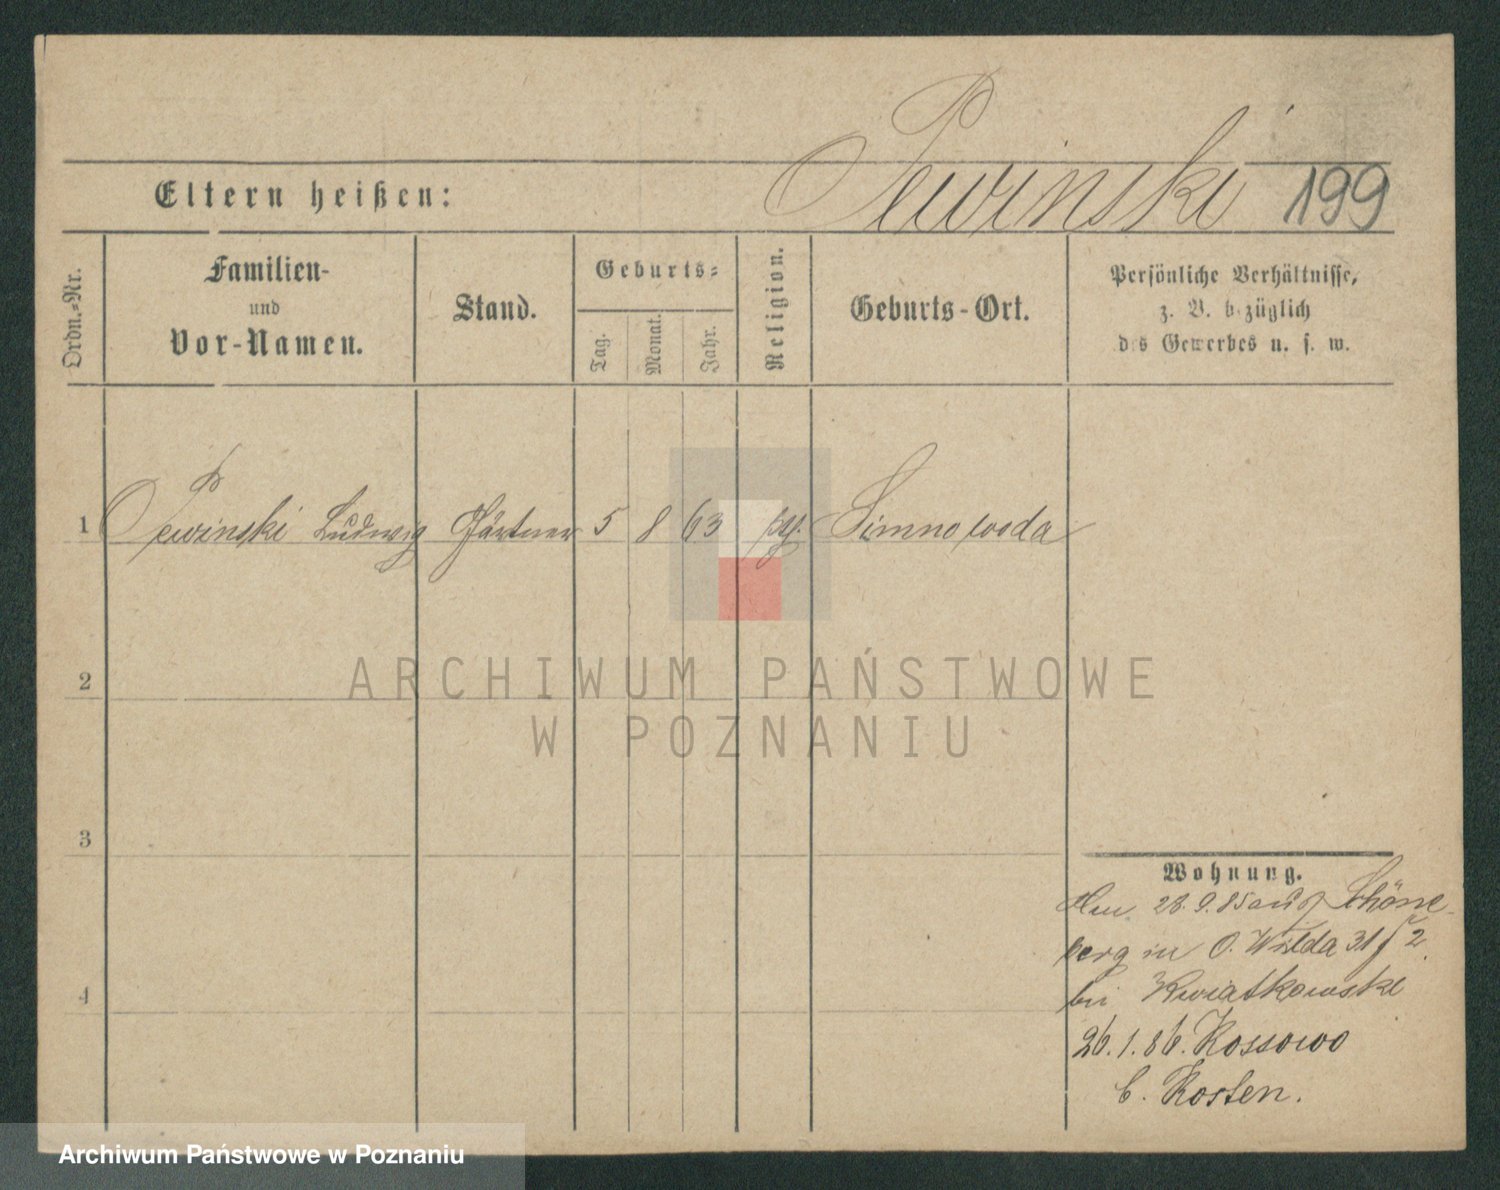 Pewinski 199
Eltern heißen:
Ordn.-Nr.
Familien-
und
Vor-Namen.
Stand.
Geburts-
Tag.
Monat.
Jahr.
Religion.
Geburts-Ort.
Persönliche Verhältnisse,
z. B. bezüglich
des Gewerbes u. s. w.
1 Pewinski Ludwig Gärtner 5 8 63 Simnowoda
2
3
4
ARCHIWUM PAŃSTWOWE
W POZNANIU
Wohnung.
28.9.85 aus Schöne-
berg in O. Wilda 31 2
bei Kwiatkowski
26.1.86. Kossowo
b. Kosten.
Archiwum Państwowe w Poznaniu